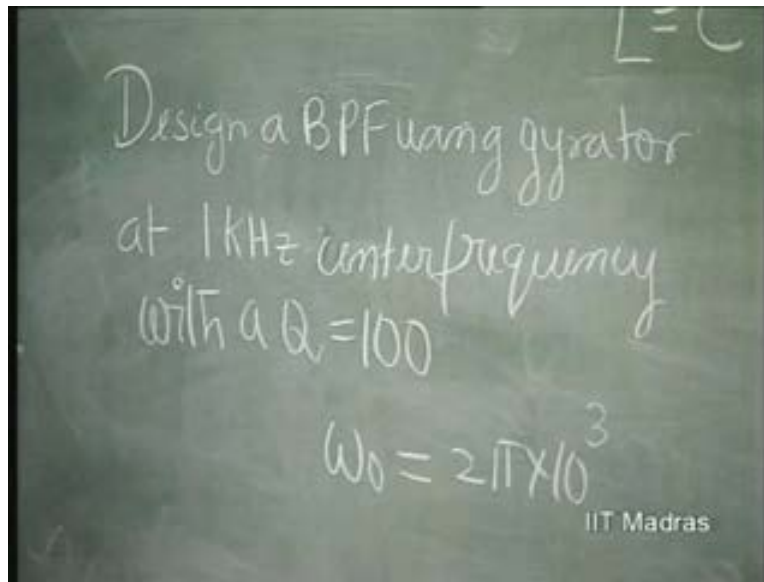 L = C
Design a BPF using gyrator
at 1kHz center frequency
with a Q = 100
ω₀ = 2π×10³
IIT Madras